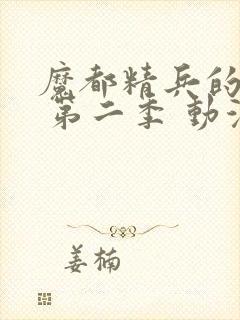 魔都精兵的
第二季 動
姜楠